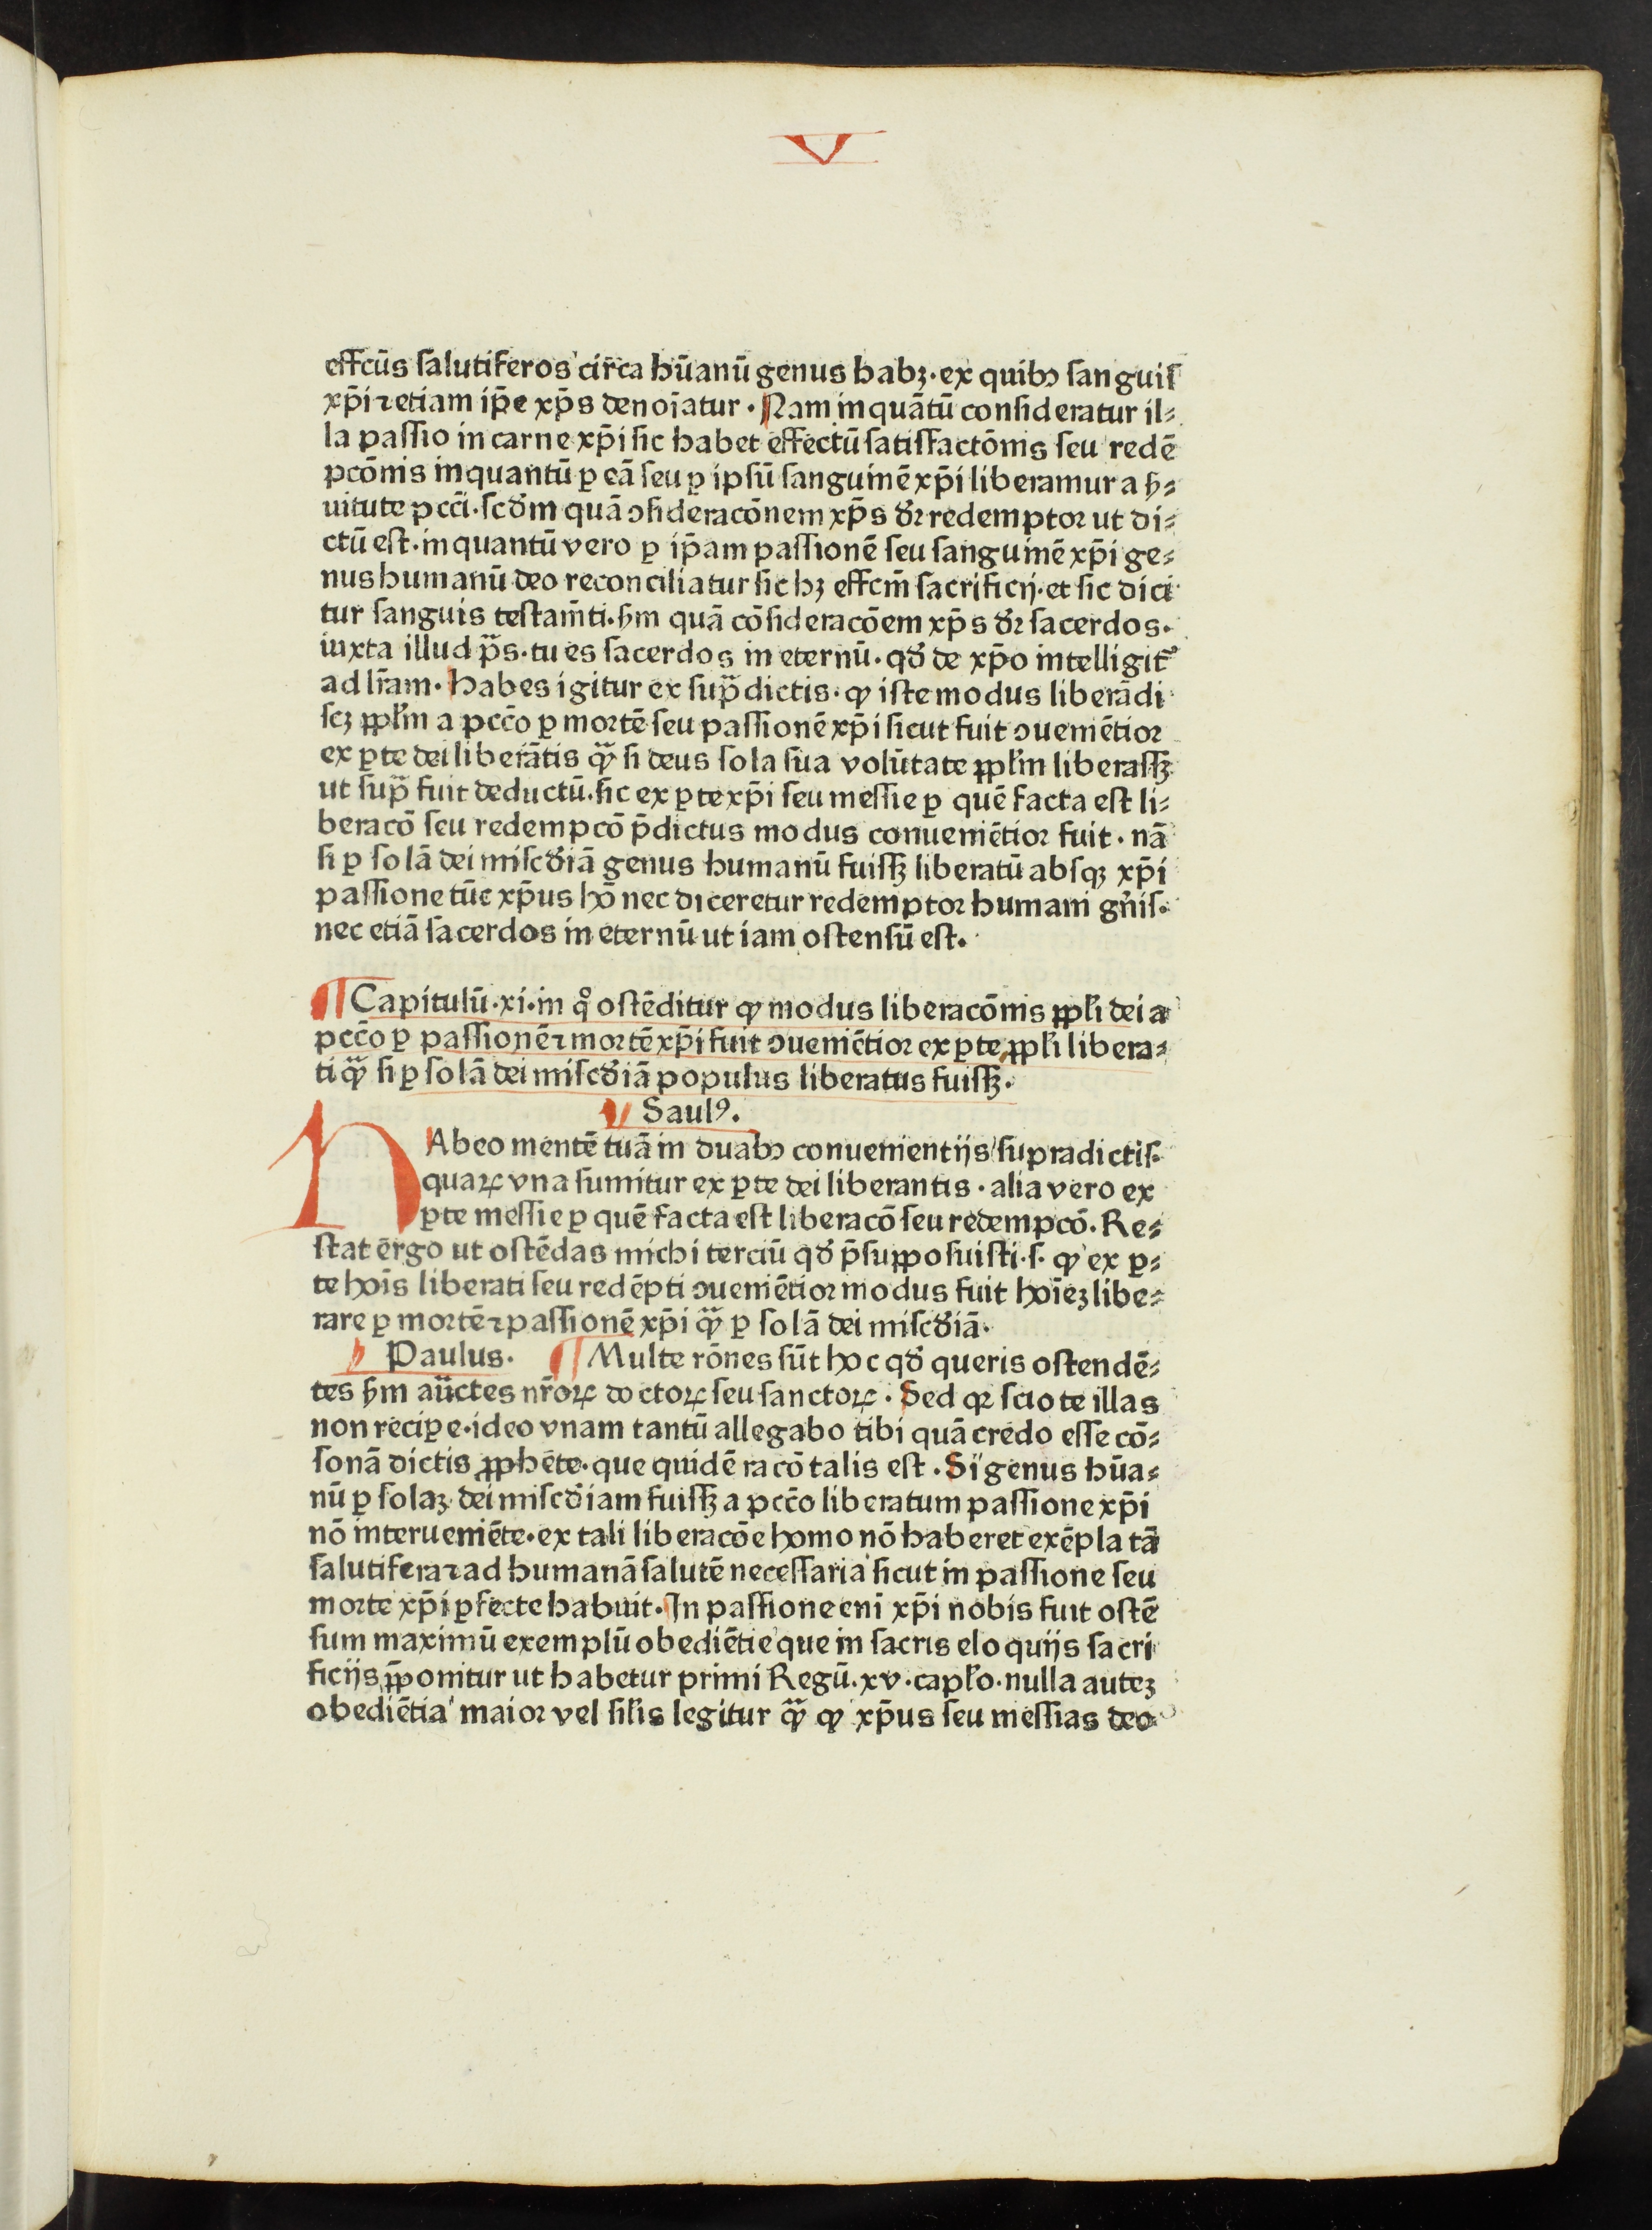 V
effcūs ſalutiferos circa hūanū genus habꝫ·ex quibꝰ ſanguiſ
xp̄i ⁊ etiam ip̄e xp̄s denoīatur · Nam inquātū conſideratur il⸗
la paſſio in carne xp̄i ſic habet effectū ſatiſfactōnis ſeu redē
pcōnis inquantū ꝑ eā ſeu ꝑ ipſū ſanguinē xp̄i liberamur a ẜ⸗
uitute pcc̄i·ſcd̓m quā ↄſideracōnem xp̄s dr̄ redemptoꝛ ut di⸗
ctū eſt·inquantū vero ꝑ ip̄am paſſionē ſeu ſanguinē xp̄i ge⸗
nus humanū deo reconciliatur ſic hꝫ effcm̄ ſacrificij·et ſic dici
tur ſanguis teſtam̄ti·ẜm quā cōſideracōem xp̄s dr̄ ſacerdos·
iuxta illud pͣs·tu es ſacerdos in eternū·qd̓ de xp̄o intelligit᷑
ad lr̄am·habes igitur ex ſupͣdictis·ꝙ iſte modus liberādi
ſcꝫ ꝓpl̓m a pcc̄o ꝑ mortē ſeu paſſionē xp̄i ſicut fuit ↄueniētioꝛ
ex ꝑte dei liberātis qͣꝫ ſi deus ſola ſua volūtate ꝓpl̓m liberaſſꝫ
ut ſupͣ fuit deductū·ſic ex ꝑte xp̄i ſeu meſſie ꝑ quē facta eſt li⸗
beracō ſeu redempcō p̄dictus modus conueniētioꝛ fuit·nā
ſi ꝑ ſolā dei miſcd̓iā genus humanū fuiſſꝫ liberatū abſqꝫ xp̄i
paſſione tūc xp̄us hō nec diceretur redemptoꝛ humani gn̄iſ·
nec etiā ſacerdos in eternū ut iam oſtenſū eſt.
¶ Capitulū·xi·in qͦ oſtēditur ꝙ modus liberacōnis ꝓpl̓i dei a
pcc̄o ꝑ paſſionē ⁊ mortē xp̄i fuit ↄueniētioꝛ ex ꝑte ꝓpl̓i libera⸗
ti qͣꝫ ſi ꝑ ſolā dei miſcd̓iā populus liberatus fuiſſꝫ·
¶ Saulꝰ.
HAbeo mentē tuā in duabꝰ conuenientijs ſupradictiſ·
quaꝝ vna ſumitur ex ꝑte dei liberantis · alia vero ex
ꝑte meſſie ꝑ quē facta eſt liberacō ſeu redempcō. Re⸗
ſtat ergo ut oſtēdas michi terciū qd̓ p̄ſuppoſuiſti·ſ·ꝙ ex ꝑ⸗
te hoīs liberati ſeu redēpti ↄueniētioꝛ modus fuit hoīeꝫ libe⸗
rare ꝑ mortē ⁊ paſſionē xp̄i qͣꝫ ꝑ ſolā dei miſcd̓iā·
¶ Paulus. ¶ Multe rōnes ſūt hoc qd̓ queris oſtendē⸗
tes ẜm auctes nr̄oꝝ doctoꝝ ſeu ſanctoꝝ · Sed qꝛ ſcio te illas
non recipe·ideo vnam tantū allegabo tibi quā credo eſſe cō⸗
ſonā dictis ꝓphete·que quidē racō talis eſt · Si genus hūa⸗
nū ꝑ ſolaꝫ dei miſcd̓iam fuiſſꝫ a pcc̄o liberatum paſſione xp̄i
nō interueniēte·ex tali liberacōe homo nō haberet exēpla tā
ſalutifera ⁊ ad humanā ſalutē neceſſaria ſicut in paſſione ſeu
morte xp̄i ꝑfecte habuit·In paſſione eni xp̄i nobis fuit oſtē
ſum maximū exemplū obediētie que in ſacris eloquijs ſacri
ficijs ꝓponitur ut habetur primi Regū·xv·capl̓o·nulla auteꝫ
obediētia maioꝛ vel ſil̓is legitur qͣꝫ ꝙ xp̄us ſeu meſſias deo